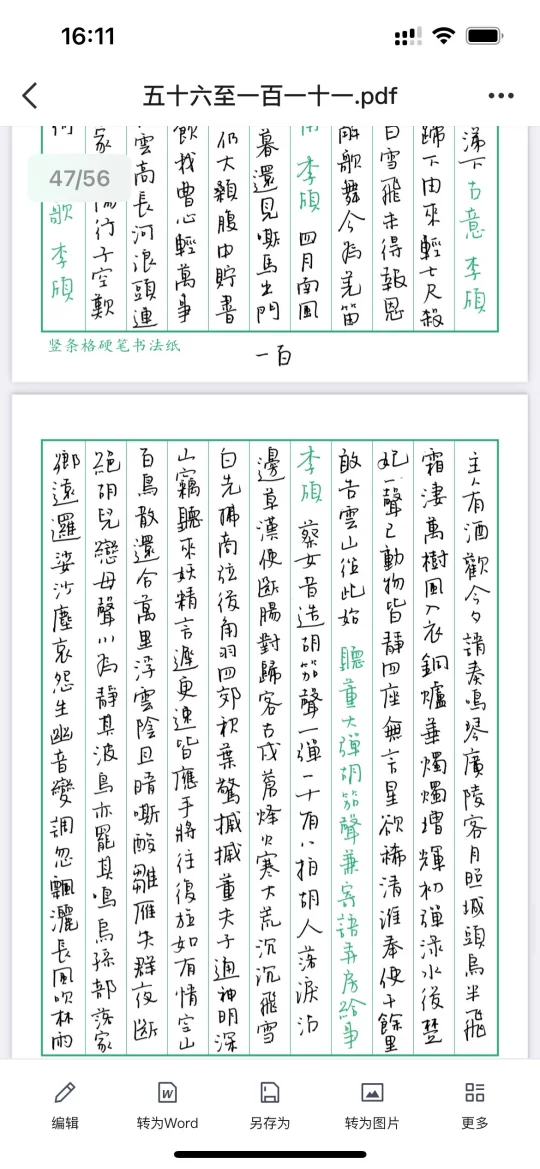 16:11
五十六至一百一十一.pdf
47/56
涕下 古意 李頎
蹄下由來輕七尺殺
白雪飛未得報恩
解歌舞今為羌笛
甫 李頎 四月南風
暮還見嘶馬出門
仍大顙腹中貯書
飲我曹心輕萬事
雲高長河浪頭連
家 行子空歎
歌 李頎
竖条格硬笔书法纸
一百
主人有酒歡今夕請奏鳴琴廣陵客月照城頭烏半飛
霜淒萬樹風入衣銅爐華燭燭增輝初彈淥水後楚
妃一聲已動物皆靜四座無言星欲稀清淮奉使千餘里
敢告雲山從此始 聽董大彈胡笳聲兼寄語弄房給事
李頎 蔡女昔造胡笳聲一彈一十有八拍胡人落淚沾
邊草漢使斷腸對歸客古戍蒼蒼烽火寒大荒沉沉飛雪
白先拂商弦後角羽四郊秋葉驚摵摵董夫子通神明深
山竊聽來妖精言遲更速皆應手將往復旋如有情空山
百鳥散還合萬里浮雲陰且晴嘶酸雛雁失群夜斷
絕胡兒戀母聲川為靜其波鳥亦罷其鳴烏孫部落家
鄉遠邏娑沙塵哀怨生幽音變調忽飄灑長風吹林雨
编辑
转为Word
另存为
转为图片
更多